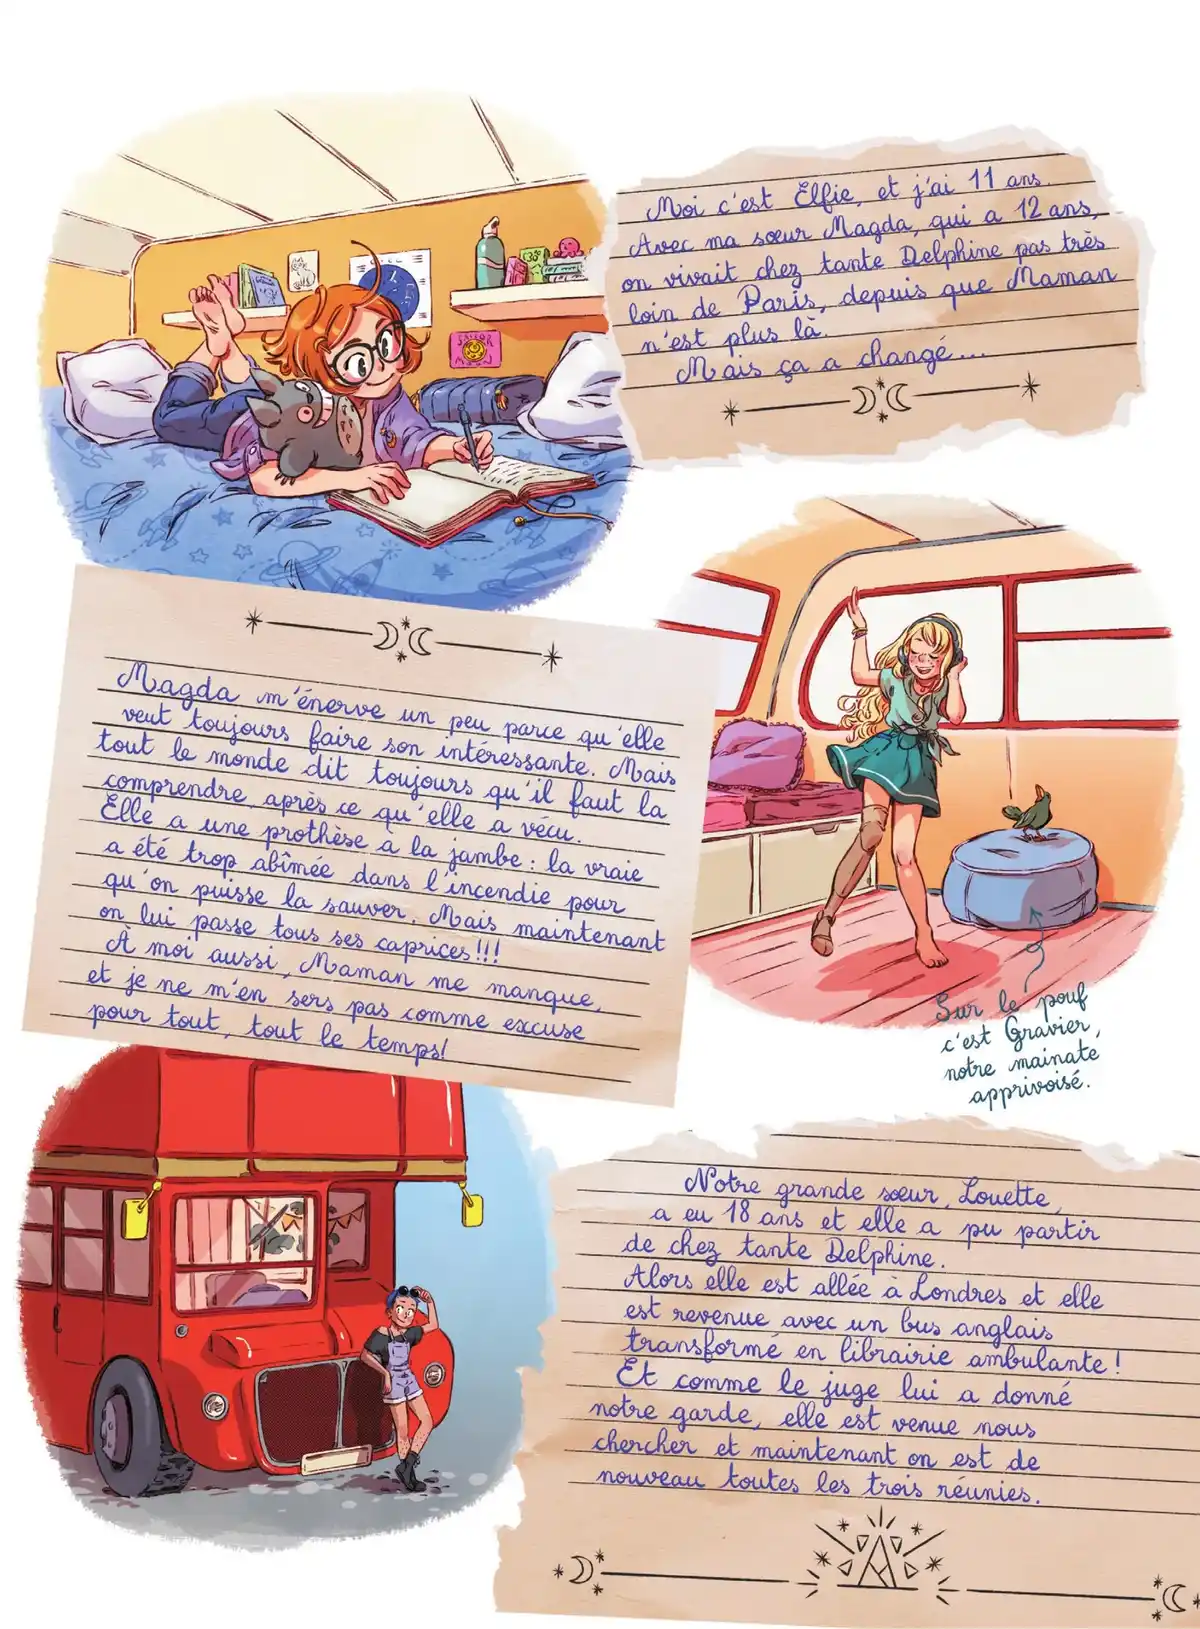 Moi c'est Elfie, et j'ai 11 ans.
Avec ma sœur Magda, qui a 12 ans,
on vivait chez tante Delphine pas très
loin de Paris, depuis que Maman
n'est plus là.
Mais ça a changé...
SAILOR
MOON
Magda m'énerve un peu parce qu'elle
veut toujours faire son intéressante. Mais
tout le monde dit toujours qu'il faut la
comprendre, après ce qu'elle a vécu.
Elle a une prothèse à la jambe : la vraie
a été trop abîmée dans l'incendie pour
qu'on puisse la sauver. Mais maintenant
on lui passe tous ses caprices!!!
À moi aussi, Maman me manque,
et je ne m'en sers pas comme excuse
pour tout, tout le temps!
Sur le pouf
c'est Gravier,
notre mainate
apprivoisé.
Notre grande sœur, Louette,
a eu 18 ans et elle a pu partir
de chez tante Delphine.
Alors elle est allée à Londres et elle
est revenue avec un bus anglais
transformé en librairie ambulante!
Et comme le juge lui a donné
notre garde, elle est venue nous
chercher et maintenant on est de
nouveau toutes les trois réunies.